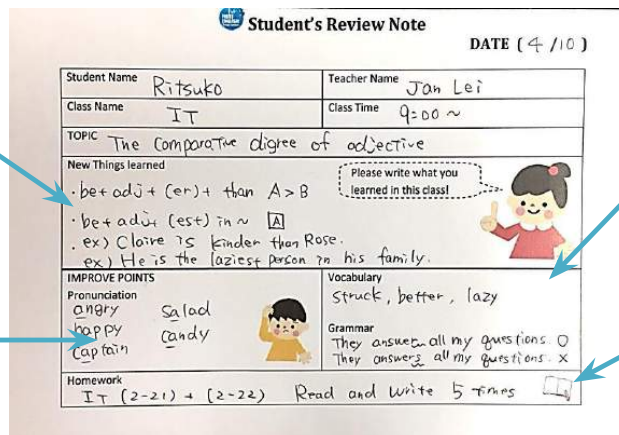 Student's Review Note
DATE ( 4 /10 )
Student Name Ritsuko
Teacher Name Jan Lei
Class Name IT
Class Time 9:00 ~
TOPIC The Comparative digree of adjective
New Things learned
Please write what you
learned in this class!
· be + adj + (er) + than A > B
· be + adj + (est) in ~ A
· ex) Claire is kinder than Rose.
ex) He is the laziest person in his family.
IMPROVE POINTS
Pronunciation
angry salad
happy candy
captain
Vocabulary
struck, better, lazy
Grammar
They answer all my questions. O
They answers all my questions. X
Homework
IT (2-21) + (2-22) Read and write 5 times